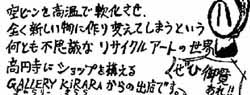 空ビンを高温で軟化させ、
全く新しい物に作り変えてしまうという
何とも不思議な リサイクルアートの世界
高円寺に ショップを構える
GALLERY KIRARA からの出店です。
ぜひ御覧
あれ!!